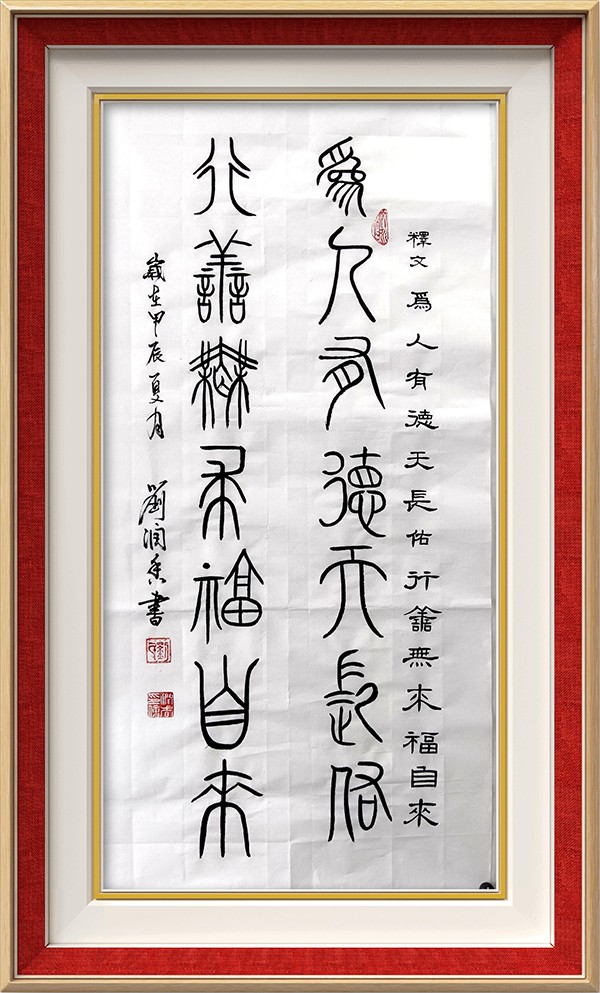 釋文 爲人有德天長佑行譱無求福自來
爲人有德天長佑
行譱無求福自來
歲在甲辰夏月 劉润香書